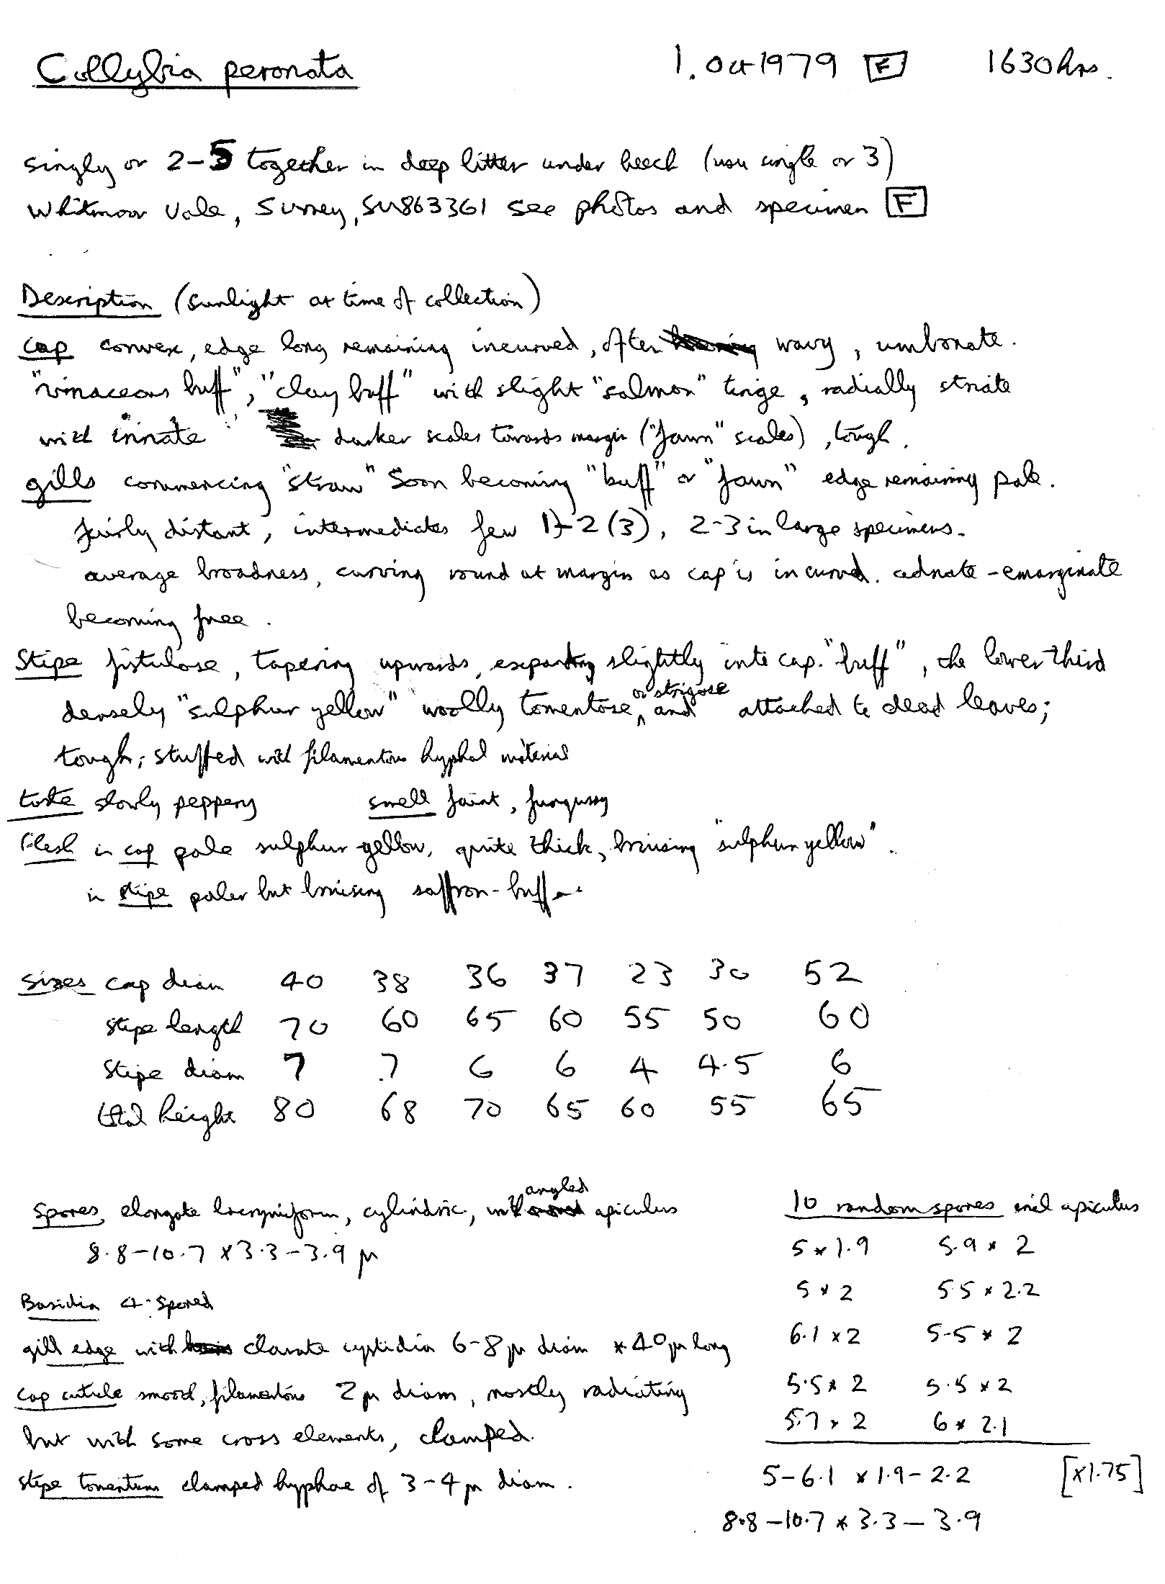 Collybia peronata 1. Oct 1979 F 1630 hrs.
singly or 2-5 together in deep litter under beech (usu single or 3)
Whitmoor Vale, Surrey, SU863361 see photos and specimen F
Description (sunlight at time of collection)
cap convex, edge long remaining incurved, often wavy, umbonate.
"vinaceous buff", "clay buff" with slight "salmon" tinge, radially striate
with innate darker scales towards margin ("fawn" scales), tough.
gills commencing "straw" soon becoming "buff" or "fawn" edge remaining pale.
fairly distant, intermediates few 1-2(3), 2-3 in large specimens.
average broadness, curving round at margin as cap is incurved. adnate-emarginate
becoming free.
Stipe fistulose, tapering upwards, expanding slightly into cap. "buff", the lower third
densely "sulphur yellow" woolly tomentose, or strigose and attached to dead leaves;
tough; stuffed with filamentous hyphal material
taste slowly peppery smell faint, fungussy
flesh in cap pale sulphur-yellow, quite thick, bruising "sulphur yellow".
in stipe paler but bruising saffron-buff
sizes cap diam 40 38 36 37 23 30 52
stipe length 70 60 65 60 55 50 60
stipe diam 7 7 6 6 4 4.5 6
total height 80 68 70 65 60 55 65
Spores, elongate lacrymiform, cylindric, with angled apiculus
8.8-10.7 x 3.3-3.9 µ
Basidia 4-spored
gill edge with clavate cystidia 6-8µ diam x 40µ long
cap cuticle smooth, filamentous 2µ diam, mostly radiating
but with some cross elements, clamped.
stipe tomentum clamped hyphae of 3-4µ diam.
10 random spores incl apiculus
5 x 1.9 5.9 x 2
5 x 2 5.5 x 2.2
6.1 x 2 5.5 x 2
5.5 x 2 5.5 x 2
5.7 x 2 6 x 2.1
5-6.1 x 1.9-2.2 [x1.75]
8.8-10.7 x 3.3-3.9